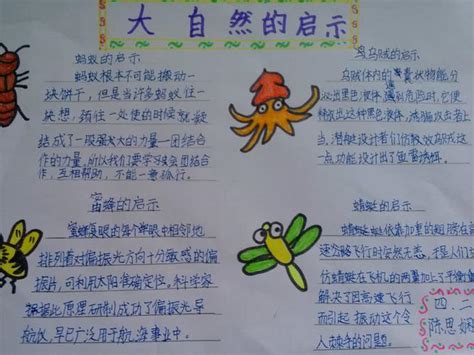 大自然的启示
蚂蚁的启示
蚂蚁根本不可能搬动一
块饼干，但是当许多蚂蚁往一
块想，须往一处使的时候就
结成了一吸强大大的力量—团结合
作的力量，所以我们要学习会团结合
作，互相帮助，不能一意孤行。
乌贼的启示
乌贼体内的囊状物能分
泌出黑色液体，遇到危险时，它便
释放出这种黑色液体，
击。潜艇设计者们仿效乌贼
一点功能设计出了鱼雷诱饵。
蜜蜂的启示
蜜蜂复眼的每个单眼中相邻他
排列着对偏振光方向十分敏感的偏
振片，可利用太阳准确定位，科学家
据此原理研制成功了偏振光导
航仪，早已广泛用于航海事业中。
蜻蜓的启示
蜻蜓依靠加重的翅膀在
速飞行时安然无恙，于是人们
仿蜻蜓在飞机的两翼加上了平衡
解决了因高速飞行
而引起振动这个令
人棘手的问题。
四、二
陈思